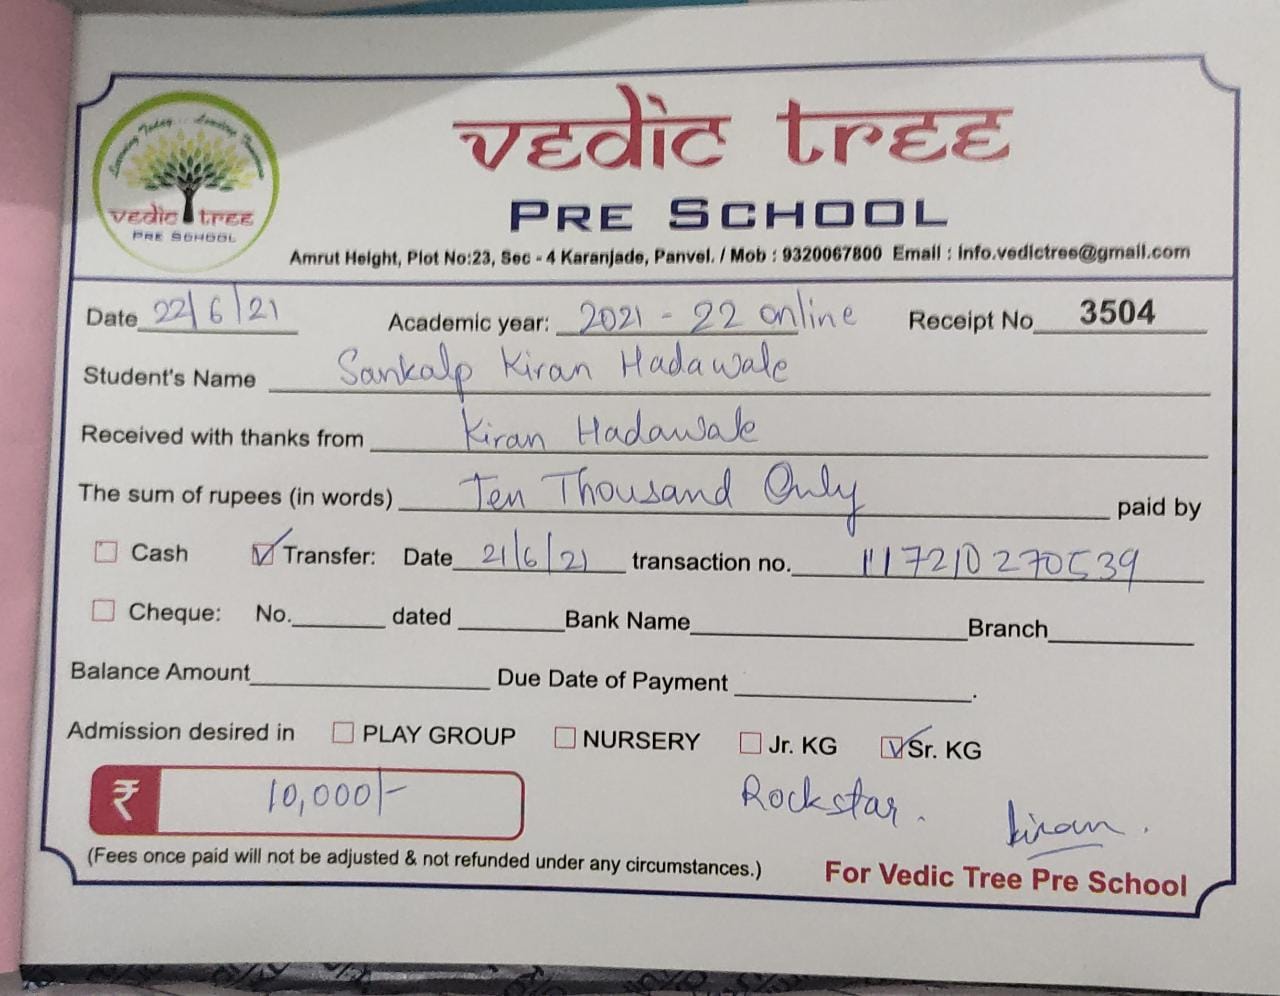 Learning Today... Leading Tomorrow
vedic tree
PRE SCHOOL
vedic tree
PRE SCHOOL
Amrut Height, Plot No:23, Sec - 4 Karanjade, Panvel. / Mob : 9320067800 Email : info.vedictree@gmail.com
Date 22/6/21 Academic year: 2021 - 22 online Receipt No 3504
Student's Name Sankalp Kiran Hadawale
Received with thanks from Kiran Hadawale
The sum of rupees (in words) Ten Thousand Only paid by
Cash Transfer: Date 21/6/21 transaction no. 117210270539
Cheque: No. dated Bank Name Branch
Balance Amount Due Date of Payment .
Admission desired in PLAY GROUP NURSERY Jr. KG Sr. KG
₹ 10,000/- Rockstar. Kiran.
(Fees once paid will not be adjusted & not refunded under any circumstances.) For Vedic Tree Pre School